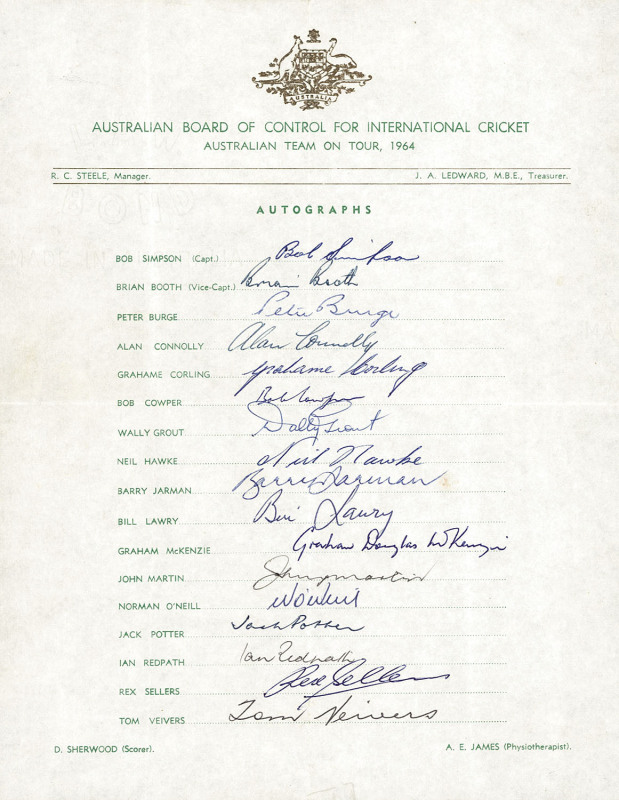 AUSTRALIA
AUSTRALIAN BOARD OF CONTROL FOR INTERNATIONAL CRICKET
AUSTRALIAN TEAM ON TOUR, 1964
R. C. STEELE, Manager. J. A. LEDWARD, M.B.E., Treasurer.
AUTOGRAPHS
BOB SIMPSON (Capt.) Bob Simpson
BRIAN BOOTH (Vice-Capt.) Brian Booth
PETER BURGE Peter Burge
ALAN CONNOLLY Alan Connolly
GRAHAME CORLING Grahame Corling
BOB COWPER Bob Cowper
WALLY GROUT Wally Grout
NEIL HAWKE Neil Hawke
BARRY JARMAN Barry Jarman
BILL LAWRY Bill Lawry
GRAHAM McKENZIE Graham Douglas McKenzie
JOHN MARTIN Johnny Martin
NORMAN O'NEILL N O'Neill
JACK POTTER Jack Potter
IAN REDPATH Ian Redpath
REX SELLERS Rex Sellers
TOM VEIVERS Tom Veivers
D. SHERWOOD (Scorer). A. E. JAMES (Physiotherapist).